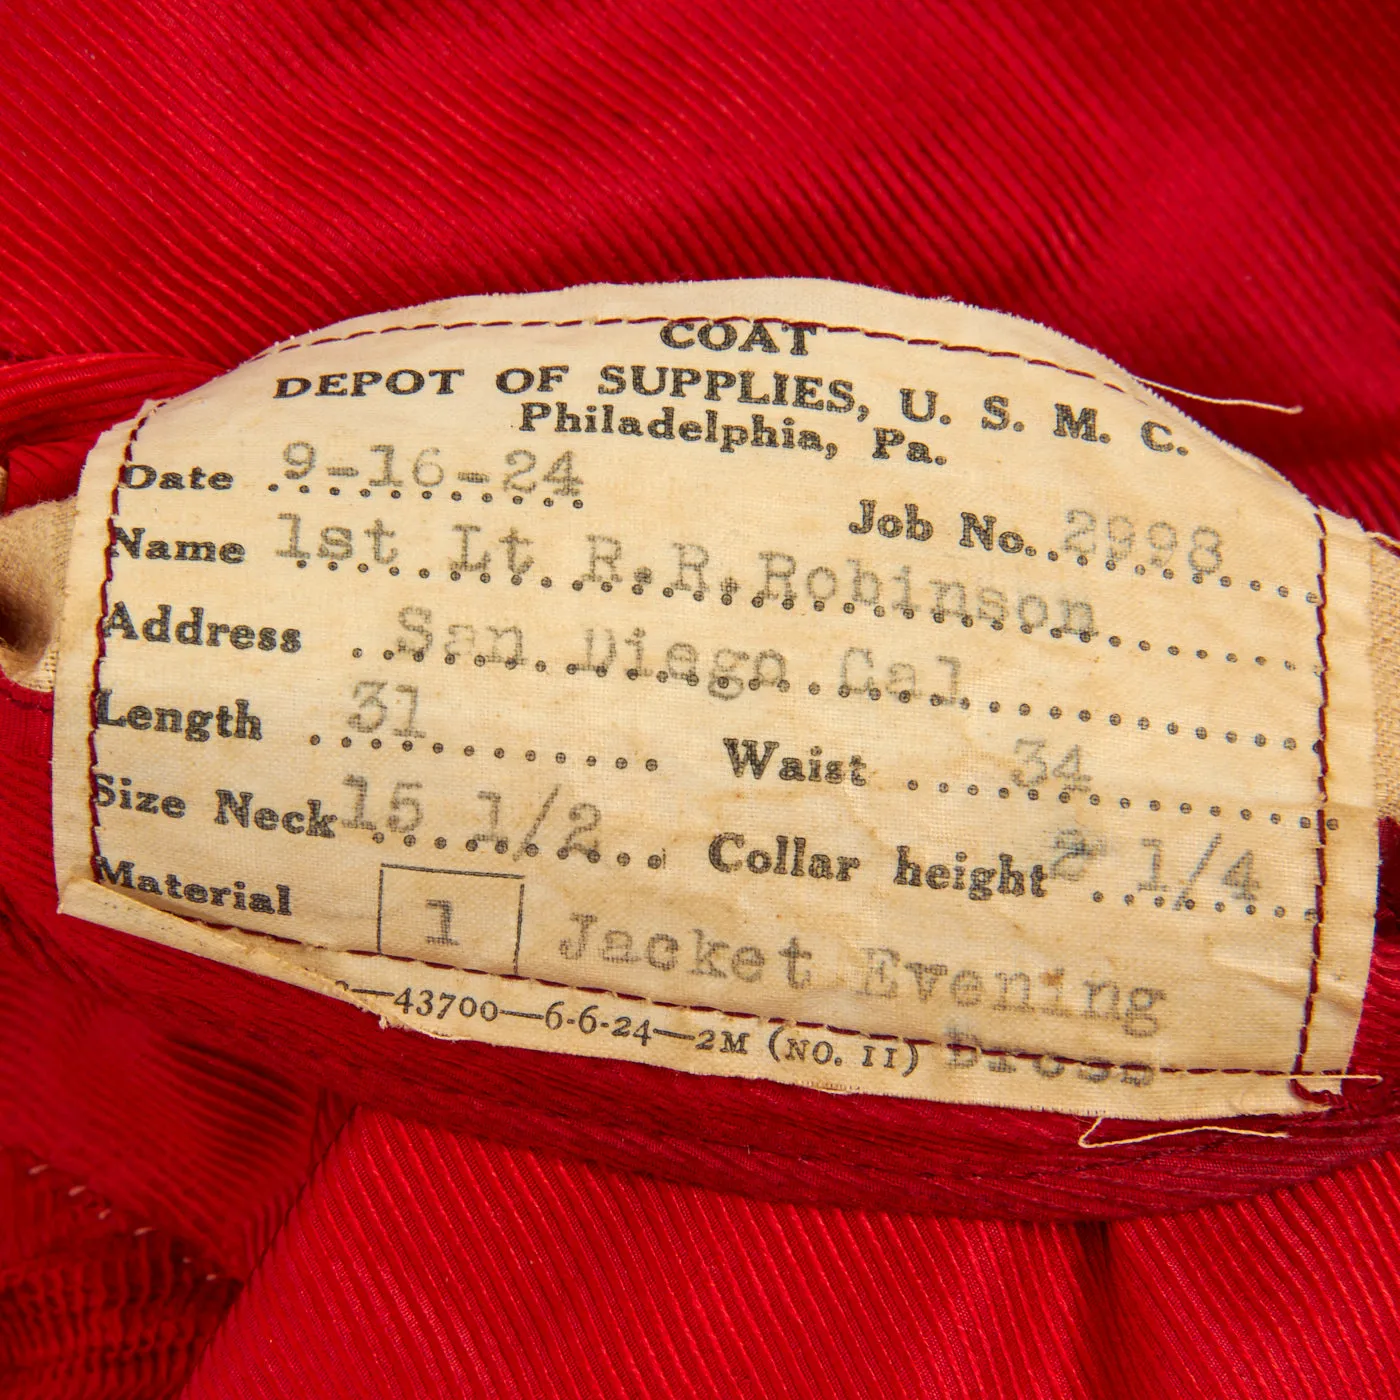 COAT
DEPOT OF SUPPLIES, U. S. M. C.
Philadelphia, Pa.
Date 9-16-24
Job No. 2998
Name 1st Lt R.R.Robinson
Address San Diego Cal
Length 31 Waist 34
Size Neck 15 1/2 Collar height 2 1/4
Material 1 Jacket Evening
Dress
—43700—6-6-24—2M (NO. 11)